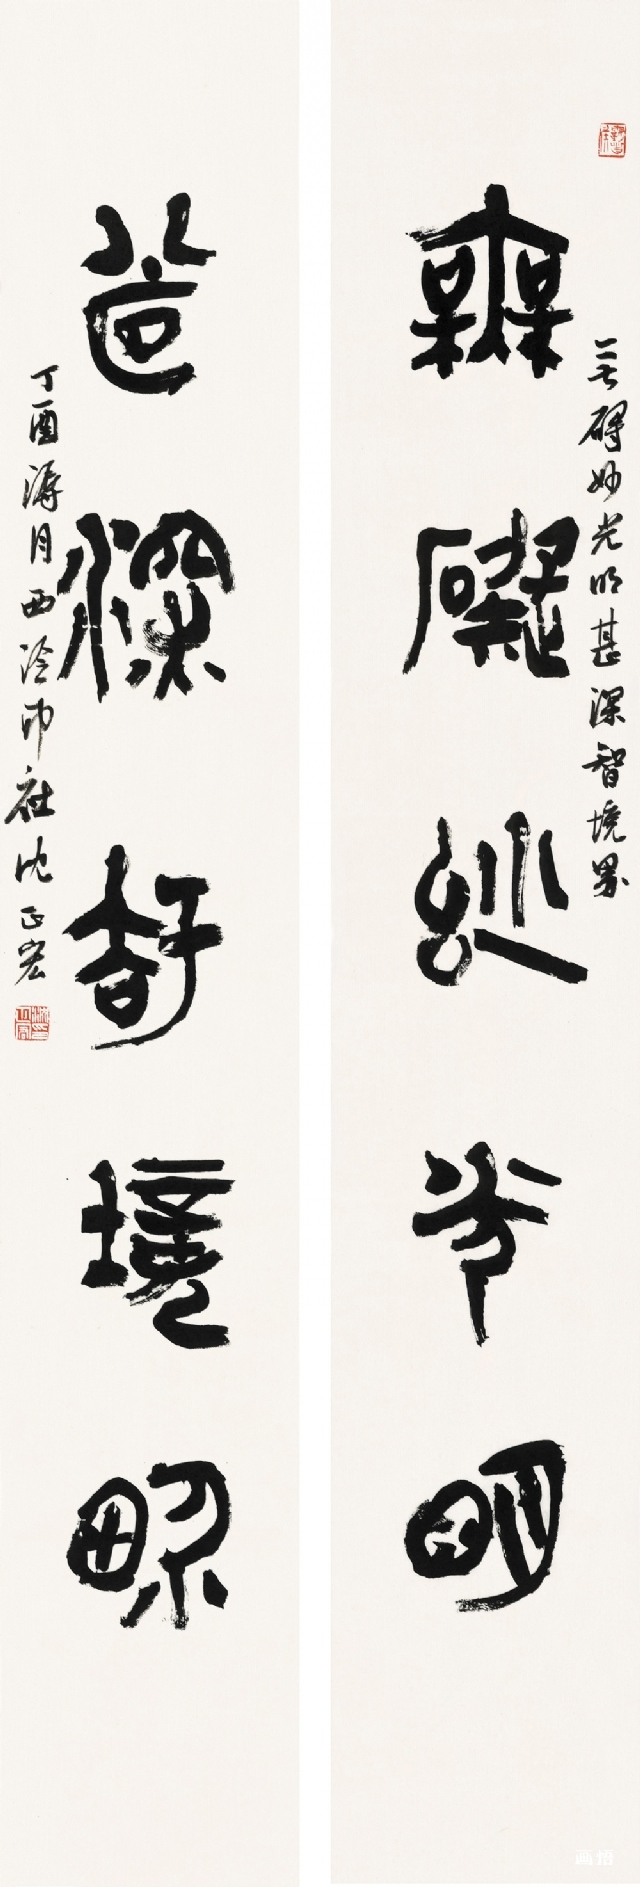 無礙妙光明
无碍妙光明甚深智境界
甚深智境界
丁酉溽月西泠印社沈正宏
画悟